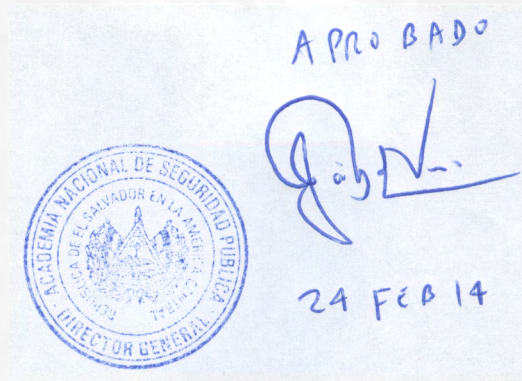 APROBADO
24 FEB 14
ACADEMIA NACIONAL DE SEGURIDAD PÚBLICA
REPÚBLICA DE EL SALVADOR EN LA AMÉRICA CENTRAL
DIRECTOR GENERAL